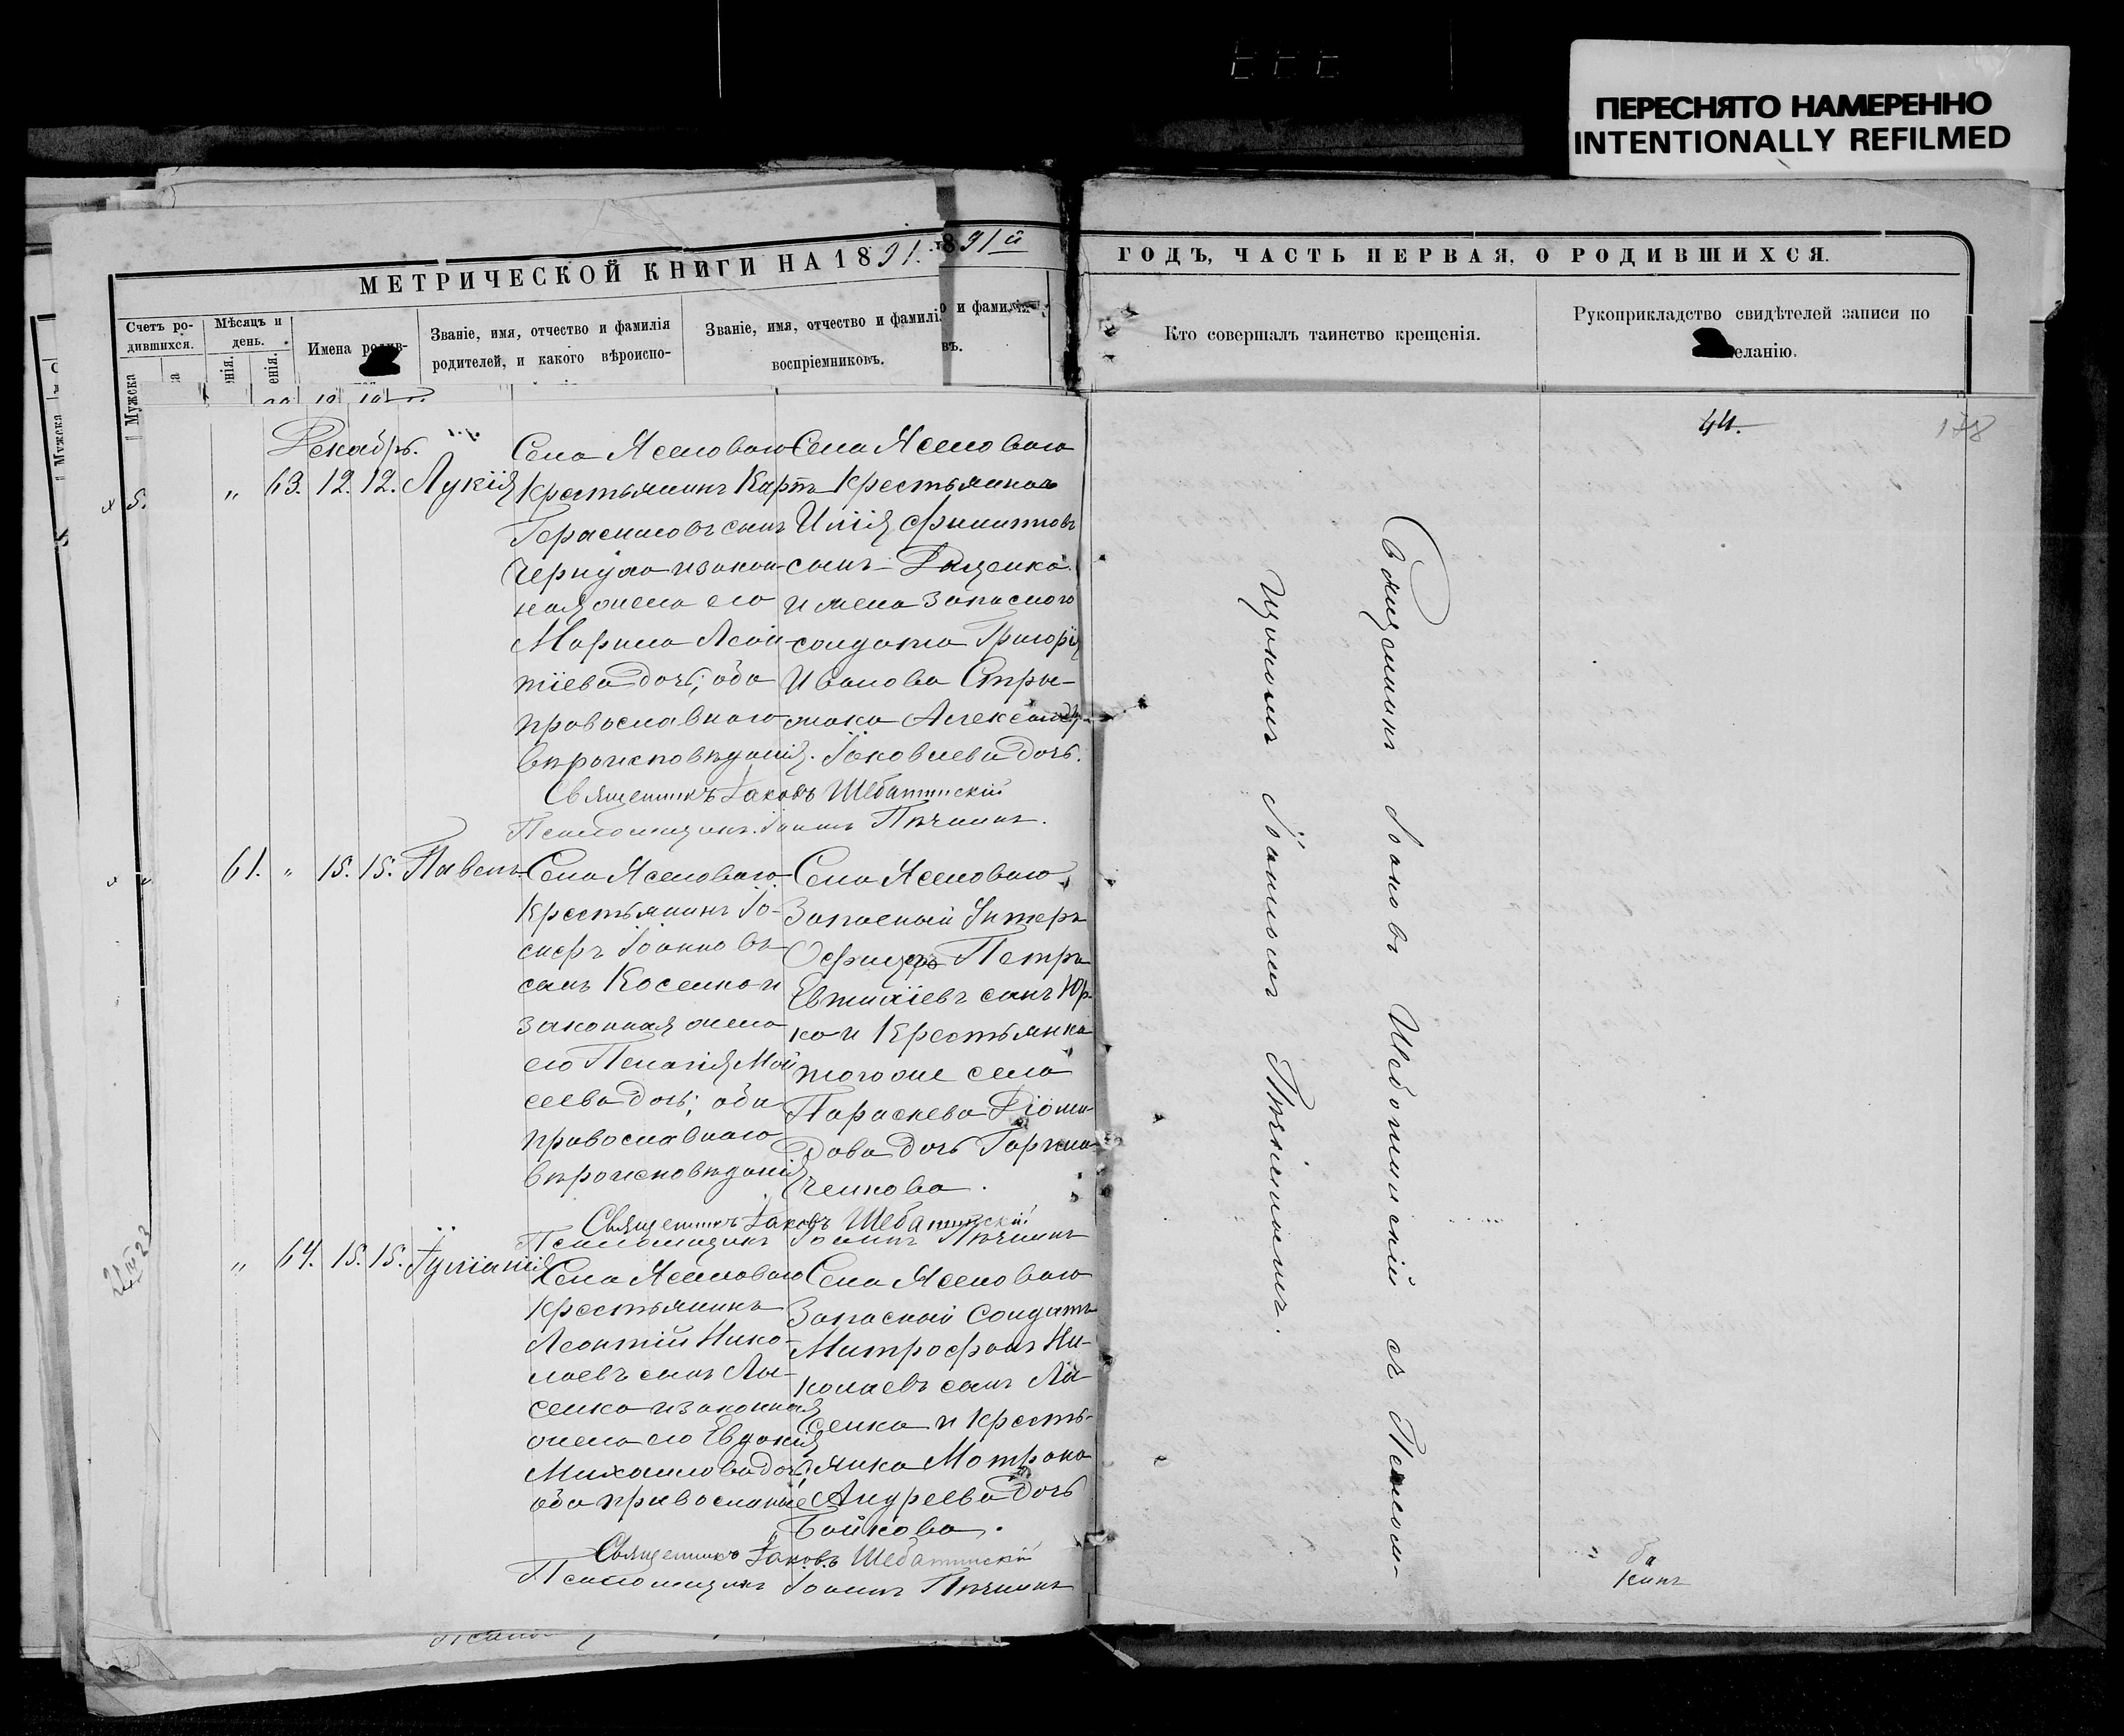 ПЕРЕСНЯТО НАМЕРЕННО
INTENTIONALLY REFILMED
МЕТРИЧЕСКОЙ КНИГИ НА 1891.
891й
ГОДЪ, ЧАСТЬ ПЕРВАЯ, О РОДИВШИХСЯ.
Счетъ ро-
дившихся.
Мѣсяцъ и
день.
Имена
Званіе, имя, отчество и фамилія
родителей, и какого вѣроиспо-
Званіе, имя, отчество и фамилі
воспріемниковъ.
о и фамилія
въ.
Кто совершалъ таинство крещенія.
Рукоприкладство свидѣтелей записи по
еланію.
Мужска
44.
178
Декабрь.
„ 63. 12. 12. Лукія
Села Яселоваго
Крестьянинъ Карпъ
Герасимовъ сынъ
и закон-
ная жена его
Марина Леон-
тіева дочь; оба
православнаго
вѣроисповѣданія.
Села Яселоваго
Крестьянинъ
Илія Филиповъ
сынъ
и жена Запаснаго
солдата Григорія
Иванова Стри-
жака Александр
Іаковлева дочь.
Священникъ Іаковъ Шебатинскій
Псаломщикъ Іоаннъ Пѣчинъ.
61. „ 15. 15. Павелъ
Села Яселоваго
Крестьянинъ Іо-
сифъ Іоанновъ
сынъ Косенко и
законная жена
его Пелагія Мои
сеева дочь; оба
православнаго
вѣроисповѣданія
Села Яселоваго
Запасный Унтеръ
Офицеръ Петръ
Евтихіевъ сынъ Юр
ко и Крестьянка
того же села
Параскева Діоми
дова дочь
Священникъ Іаковъ Шебатинскій
Псаломщикъ Іоаннъ Пѣчинъ
„ 64. 15. 15. Іуліанія
Села Яселоваго
Крестьянинъ
Леонтій Нико-
лаевъ сынъ Ля-
сенко и законная
жена его Евдокія
Михаилова дочь
оба православные
Села Яселоваго
Запасный Солдатъ
Митрофанъ Ни-
колаевъ сынъ Ля
сенко и Кресть-
янка Матрона
Андреева дочь
Бойкова.
Священникъ Іаковъ Шебатинскій
Псаломщикъ Іоаннъ Пѣчинъ
Священникъ Іаковъ Шебатинскій съ Псалом-
щикомъ Іоанномъ Пѣчинымъ.